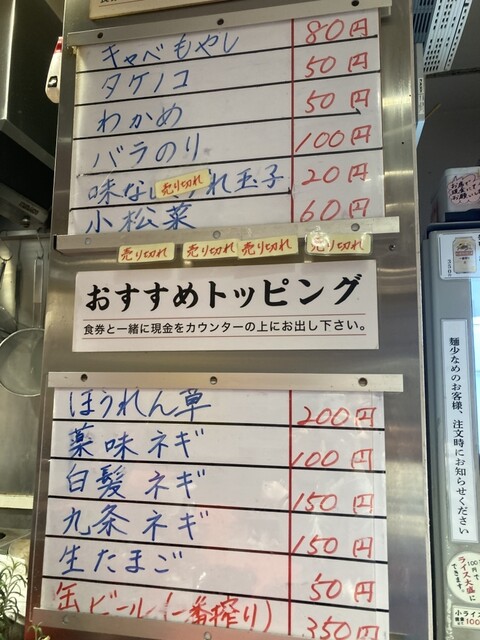 キャベもやし 80円
タケノコ 50円
わかめ 50円
バラのり 100円
味な 売り切れ れ玉子 20円
小松菜 60円
売り切れ 売り切れ 売り切れ 売り切れ
おすすめトッピング
食券と一緒に現金をカウンターの上にお出し下さい。
ほうれん草 200円
薬味ネギ 100円
白髪ネギ 150円
九条ネギ 150円
生たまご 50円
缶ビール(一番搾り) 350円
麺少なめのお客様、注文時にお知らせください
100円で
ライス大盛に
できます。
小ライス
100